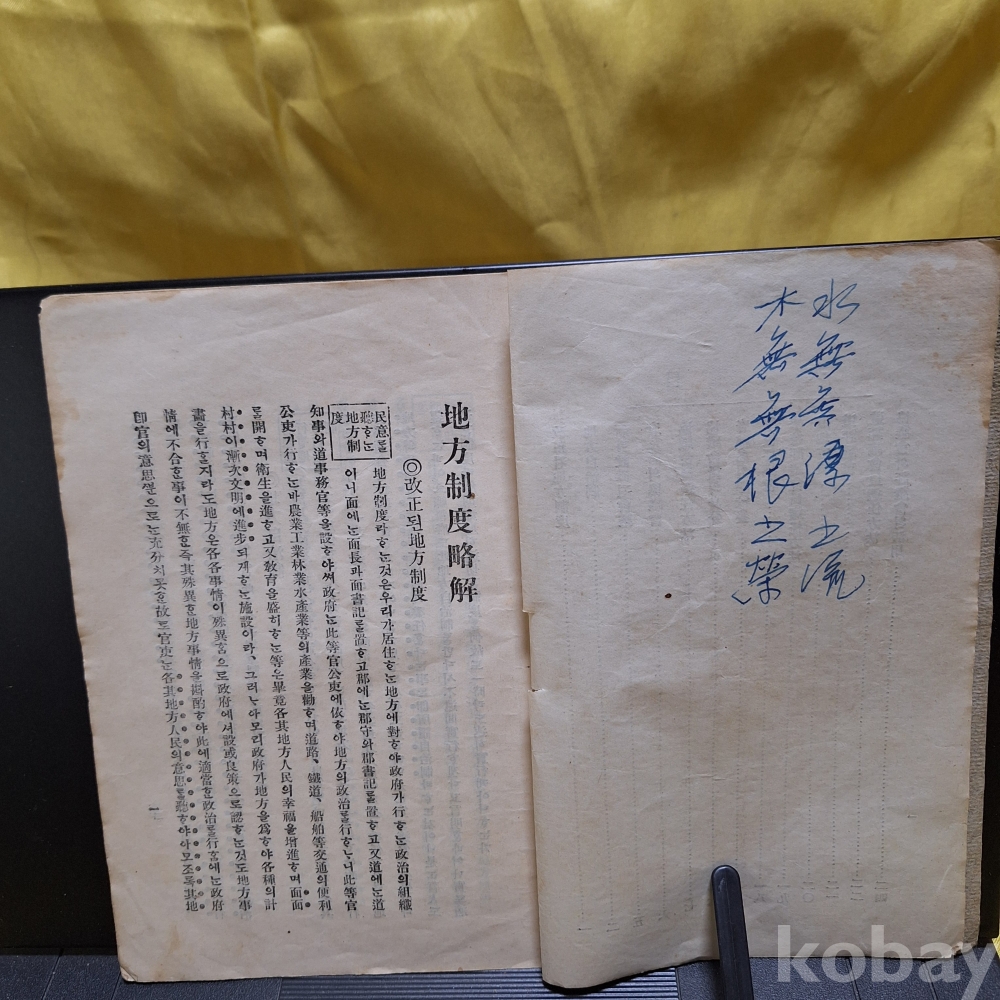 水無無源之流
木無無根之榮
地方制度略解
◎改正된地方制度
民意를
聽ᄒᆞᄂᆞᆫ
地方制
度
地方制度라ᄒᆞᄂᆞᆫ것은우리가居住ᄒᆞᄂᆞᆫ地方에對ᄒᆞ야政府가行ᄒᆞᄂᆞᆫ政治의組織
아니面에ᄂᆞᆫ面長과面書記를置ᄒᆞ고郡에ᄂᆞᆫ郡守와郡書記를置ᄒᆞ고又道에ᄂᆞᆫ道
知事와道事務官等을設ᄒᆞ야써政府ᄂᆞᆫ此等官公吏에依ᄒᆞ야地方의政治를行ᄒᆞᄂᆞ니此等官
公吏가行ᄒᆞᄂᆞᆫ바農業工業林業水產業等의產業을勸ᄒᆞ며道路、鐵道、船舶等交通의便利
를開ᄒᆞ며衛生을進ᄒᆞ고又敎育을盛히ᄒᆞᄂᆞᆫ等은畢竟各其地方人民의幸福을增進ᄒᆞ며面面
村村이漸次文明에進步되게ᄒᆞᄂᆞᆫ施設이라、그러ᄂᆞ아모리政府가地方을爲ᄒᆞ야各種의計
畫을行ᄒᆞᆯ지라도地方은各各事情이殊異ᄒᆞᆷ으로政府에셔設或良策으로認ᄒᆞᄂᆞᆫ것도地方事
情에不合ᄒᆞᆫ事이不無ᄒᆞᆫ즉其殊異ᄒᆞᆫ地方事情을斟酌ᄒᆞ야此에適當ᄒᆞᆫ政治를行ᄒᆞᆷ에ᄂᆞᆫ政府
卽官의意思ᄲᅮᆫ으로ᄂᆞᆫ充分치못ᄒᆞᆫ故로官吏ᄂᆞᆫ各其地方人民의意思를聽ᄒᆞ야아모조록其地
一
kobay